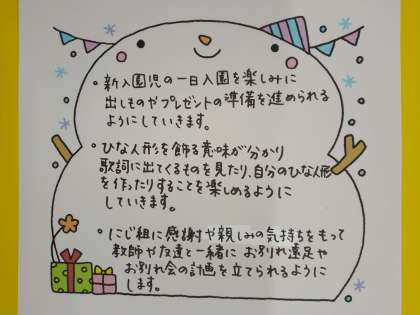 ・新入園児の一日入園を楽しみに
出しものやプレゼントの準備を進められる
ようにしていきます。
・ひな人形を飾る意味が分かり
歌詞に出てくるものを見たり、自分のひな人形
を作ったりすることを楽しめるように
していきます。
・にじ組に感謝や親しみの気持ちをもって
教師や友達と一緒に お別れ遠足や
お別れ会の計画を立てられるように
します。